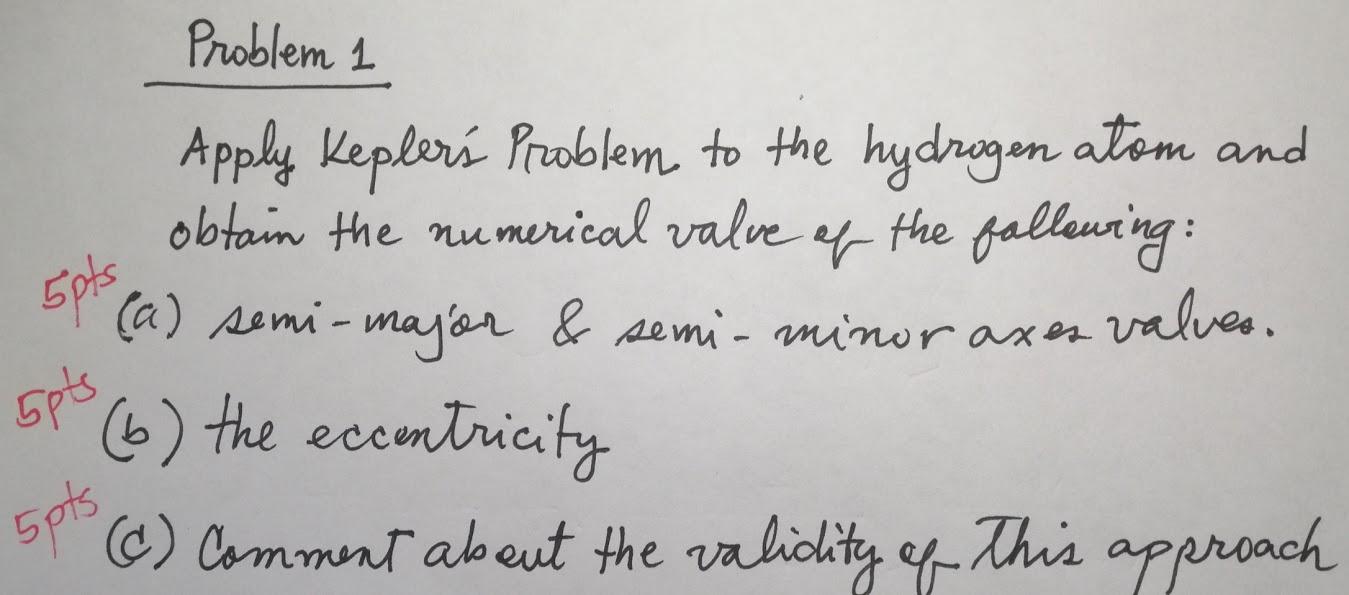 Problem 1
Apply Kepler's Problem to the hydrogen atom and
obtain the numerical value of the following:
5pts (a) semi-major & semi-minor axes values.
5pts (b) the eccentricity
5pts (c) Comment about the validity of This approach